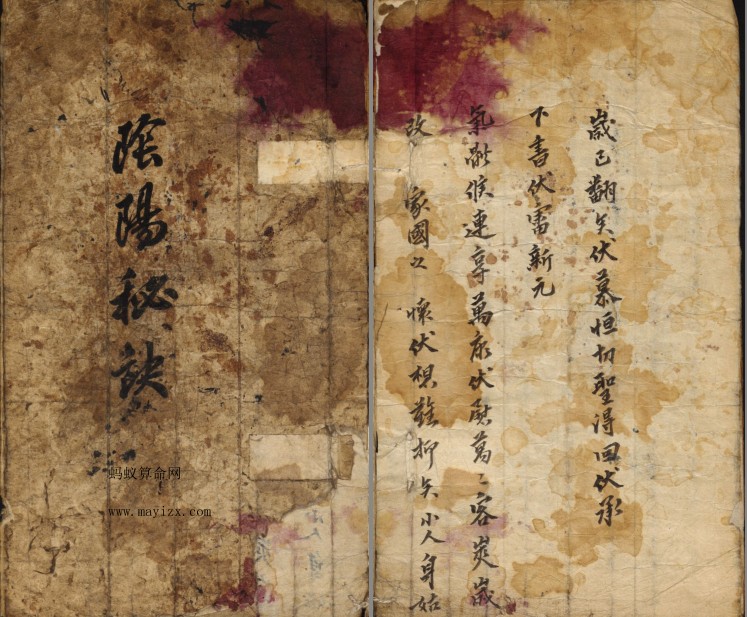 陰陽秘訣
蚂蚁算命网
www.mayizx.com
歲已翻矣伏慕恒切聖得回伏承
下書伏審新元
氣候連享萬康伏慰萬〻客炭歲
改 家國之 懷伏想難抑矣小人身姑